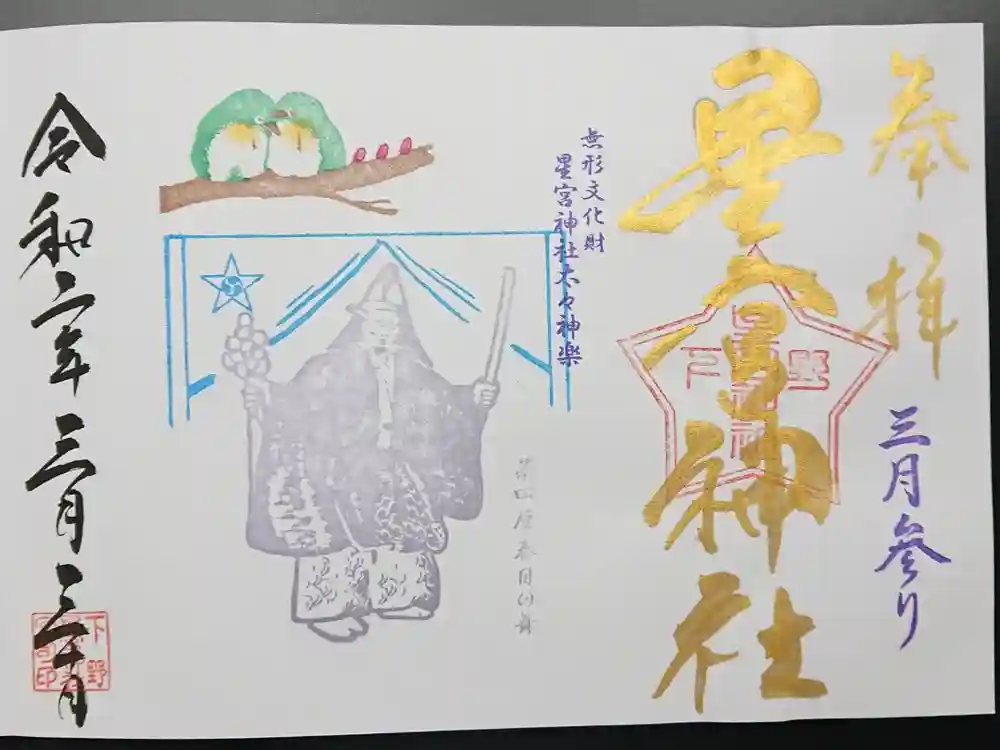 奉拝
三月参り
星宮神社
星宮
下野
無形文化財
星宮神社太々神楽
第四座春日の舞
令和二年三月三十日
下野